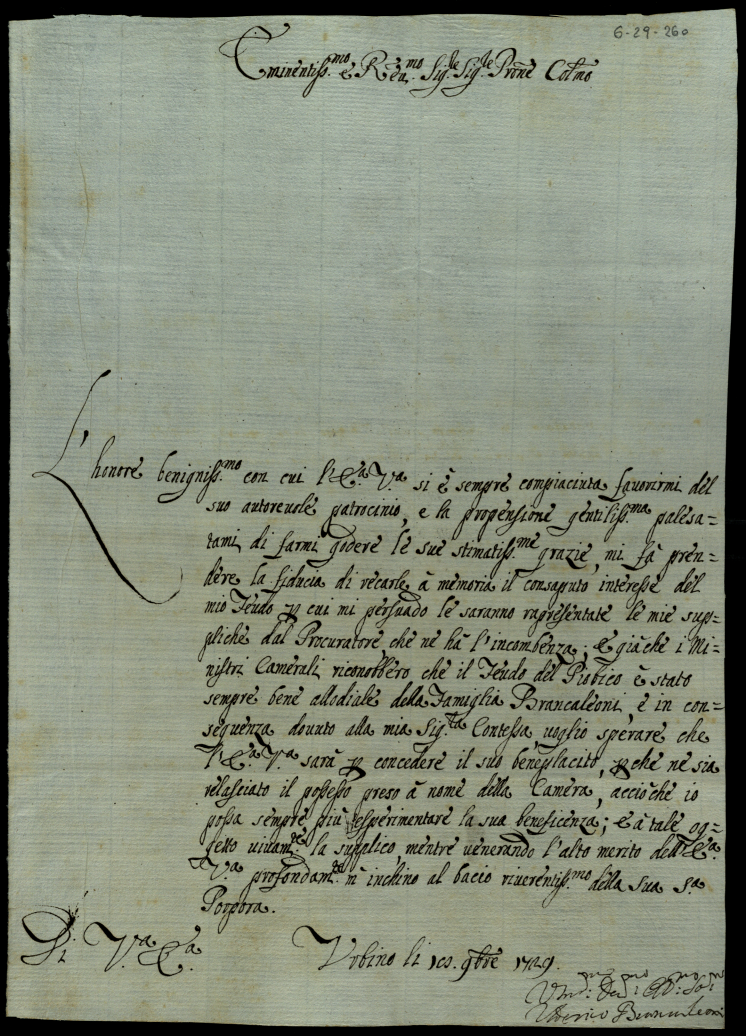 6-29-260
Eminentiss.mo e Reu.mo Sig.re Sig.re Prone Colmo
L'honore benigniss.mo con cui l'E.a V.a si è sempre compiaciuta fauorirmi del
suo autoreuole patrocinio, e la propensione gentiliss.ma palesa=
tami di farmi godere le sue stimatiss.me grazie, mi fà pren=
dere la fiducia di recarle à memoria il consaputo interesse del
mio Feudo p cui mi persuado le saranno rapresentate le mie sup=
pliche dal Procuratore che ne hà l'incombenza; E già che i Mi=
nistri Camerali riconobbero che il Feudo del Piobico è stato
sempre bene allodiale della Famiglia Brancaleoni, e in con=
sequenza douuto alla mia Sig.ra Contessa uoglio sperare che
l'E.a V.a sarà p concedere il suo beneplacito, p che ne sia
relasciato il possesso preso à nome della Camera, acciòche io
possa sempre più esperimentare la sua beneficenza; e à tale og=
getto uiuam.te la supplico, mentre uenerando l'alto merito dell'E.a
V.a profondam.te m'inchino al bacio riuerentiss.mo della sua S.a
Porpora.
Di V.a E.a
Vrbino li 10. 9bre 1729.
Brancaleoni